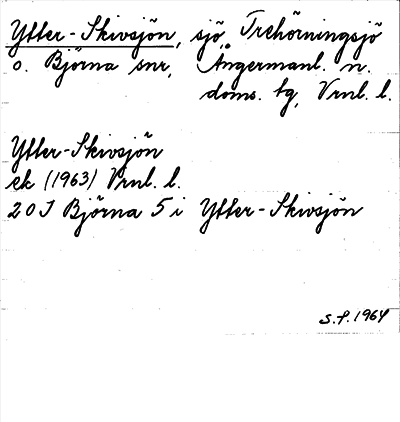 Ytter-Skivsjön, sjö, Trehörningsjö
o. Björna snr, Ångermanl. n.
doms. tg, Vrnl. l.
Ytter-Skivsjön
ek (1963) Vrnl. l.
20J Björna 5 i Ytter-Skivsjön
S.P. 1964